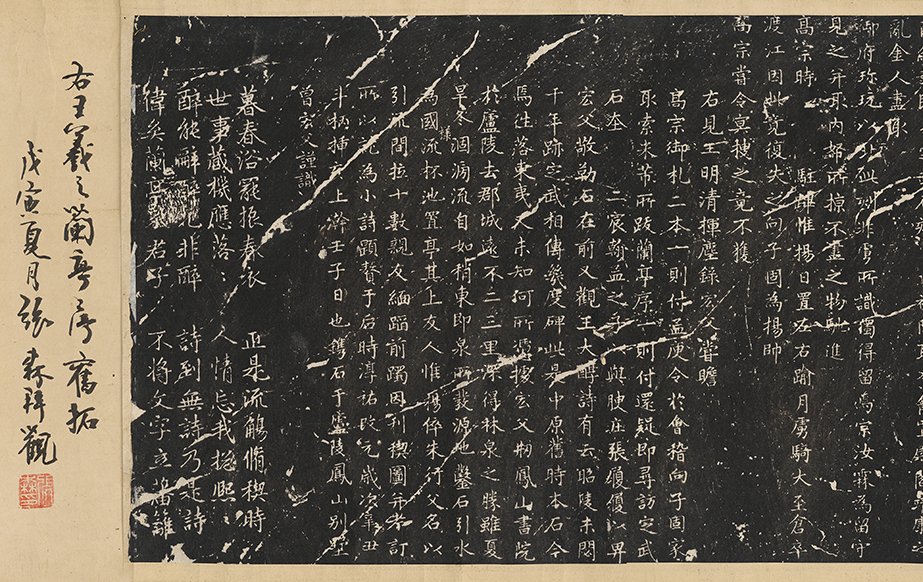 亂金人盡取
御府珍玩以北而此刻非虜所識獨得留焉宗汝霖為留守
見之并取內帑所掠不盡之物馳進
高宗時　駐蹕惟揚日置左右踰月虜騎大至倉卒
渡江因此竟復失之向子固為揚帥
高宗嘗令冥搜之竟不獲
右見王明清揮麈錄宏父嘗瞻
高宗御札二本一則付孟庾令於會稽向子固家
取索米芾所跋蘭亭序一則付還疑即尋訪定武
石
宏父敬勒石在前又觀王大醇詩有云昭陵未閟
千年跡定武相傳幾度碑此是中原舊時本石今
焉往落東夷人未知何所憑據宏父炳鳳山書院
於廬陵去郡城遠不二三里深得林泉之勝雖夏
旱冬涸流自如稍東即泉所發源也鑿石引水
為國流杯池置亭其上友人惟揚倅朱行父名以
引流間拉十數親友緬蹈前躅因刊禊圖并考訂
所以就為小詩顯贅于后時淳祐改元歲次辛丑
斗柄插子上澣壬子日也鐫石于廬陵鳳山別墅
曾宏父謹識
暮春浴罷振春衣　正是流觴脩禊時
世事藏機應落落　人情忘我摠熙熙
醉能解非醉　詩到無詩乃是詩
偉矣蘭亭君子　不將文字立藩籬
右王羲之蘭亭序舊拓
戊寅夏月張森拜觀